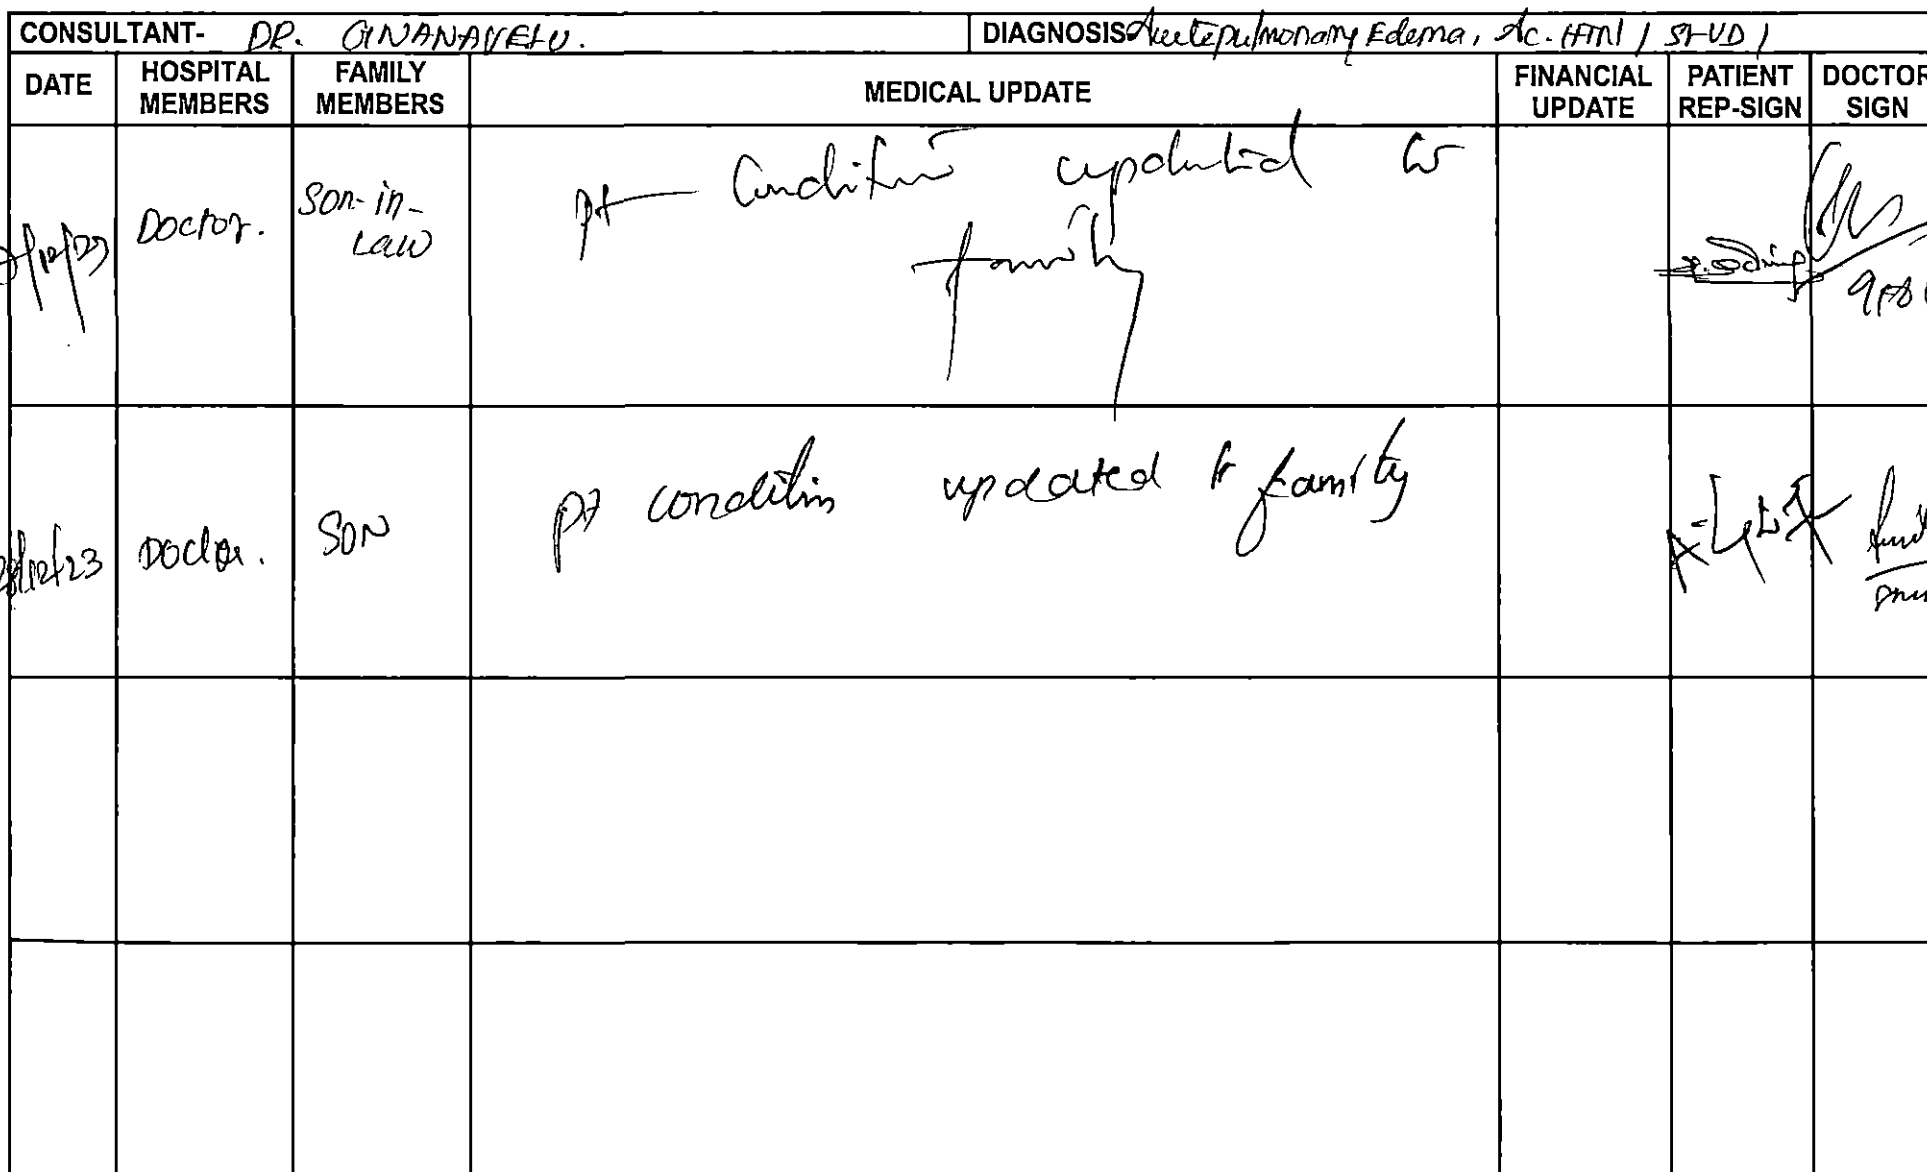 CONSULTANT- DR. GNANAVELU. DIAGNOSIS Acute pulmonary Edema, Ac. HTN /
DATE HOSPITAL MEMBERS FAMILY MEMBERS MEDICAL UPDATE FINANCIAL UPDATE PATIENT REP-SIGN DOCTOR SIGN
/12/23 Doctor. Son-in-Law pt Condition updated to
family
/12/23 Doctor. SON pt condition updated to family